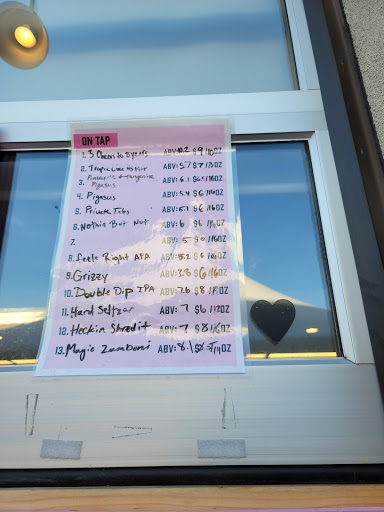 ON TAP
1. 3 Cheers to 3 years ABV: $9 /16OZ
2. Tropic ABV: 5.7 $7 /OZ
3. Pineapple + tangerine Pigasus ABV: 6.1 /16OZ
4. Pigasus ABV: 5.4 $6 /16OZ
5. Private Jobs ABV: 5.1 $6 /16OZ
6. Nothin But Nut ABV: 6 $6 /OZ
7. ABV: 5 /16OZ
8. feels Right APA ABV: 5.2 $ /16OZ
9. Grizzy ABV: 3.8 $6 /16OZ
10. Double Dip IPA ABV: 7.6 $8 /OZ
11. Hard Seltzer ABV: 7 $6 /12OZ
12. Heckin Shredit ABV: 7 $8 /16OZ
13. Magic Zamboni ABV: 8.1 /14OZ